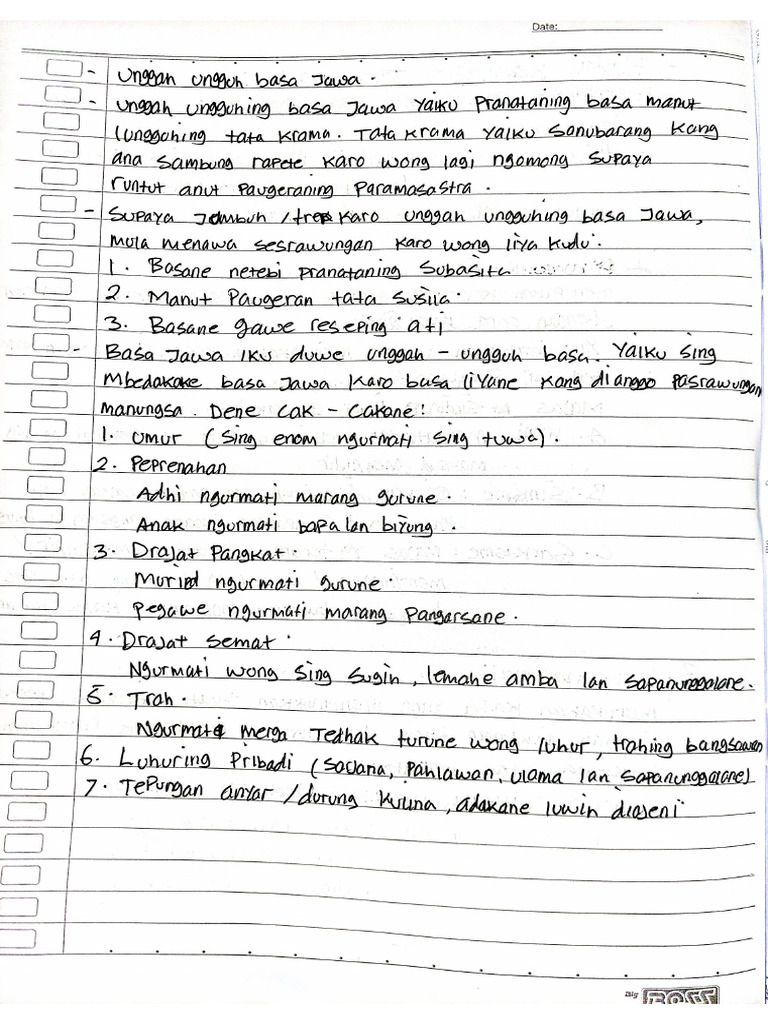 Date:
- Unggah ungguh basa Jawa.
- Unggah ungguhing basa Jawa Yaiku Pranataning basa manut
lungguhing tata krama. Tata krama Yaiku Sanubarang Kang
ana Sambung rapete Karo wong lagi ngomong Supaya
runtut anut Paugeraning Paramasastra.
- Supaya Jumbuh / trep Karo unggah ungguhing basa Jawa,
mula menawa sesrawungan Karo wong liya Kudu:
1. Basane netebi pranataning Subasita
2. Manut Paugeran tata Susila.
3. Basane gawe reseping ati
- Basa Jawa iku duwe unggah - ungguh basa. Yaiku sing
Mbedakake basa Jawa Karo basa liyane Kang dianggo Pasrawungan
manungsa. Dene Cak - Cakane!
1. Umur (Sing enom ngurmati sing tuwa).
2. Peprenahan
Adhi ngurmati marang gurune.
Anak ngurmati bapa lan biyung.
3. Drajat Pangkat.
Murid ngurmati gurune.
Pegawe ngurmati marang Pangarsane.
4. Drajat Semat.
Ngurmati wong Sing Sugih, lemahe amba lan sapanunggalane.
5. Trah.
Ngurmati merga Tedhak turune wong luhur, trahing bangsawan
6. Luhuring Pribadi (Sadana, Pahlawan, ulama lan sapanunggalane)
7. Tepungan anyar / durung Kulina, adakane luwih diajeni
Big BOSS